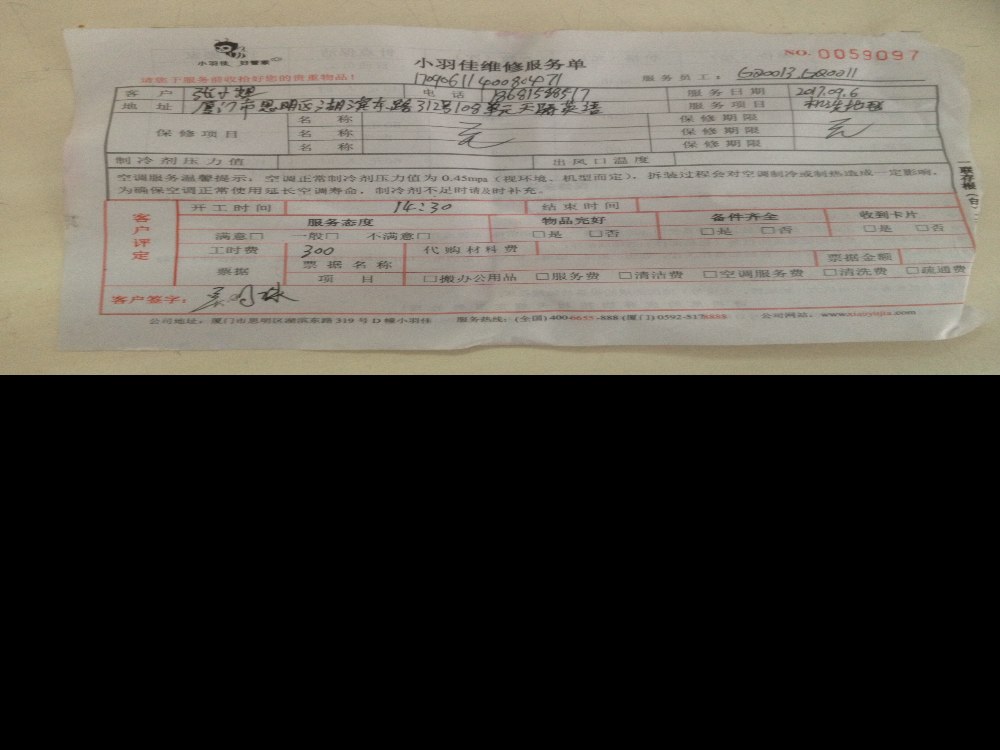 小羽佳 好管家
小羽佳维修服务单
NO. 0059097
请您于服务前收拾好您的贵重物品！
服务员工：
客 户
电 话
服务日期 2017.09.6
地 址 厦门市思明区湖滨东路312号108单元天
服务项目
保修项目
名 称 无 保修期限 无
名 称 保修期限
名 称 保修期限
制冷剂压力值 出风口温度
空调服务温馨提示：空调正常制冷剂压力值为 0.45mpa（视环境、机型而定），拆装过程会对空调制冷或制热造成一定影响，
为确保空调正常使用延长空调寿命，制冷剂不足时请及时补充。
客户评定
开工时间 14:30 结束时间
服务态度 物品完好 备件齐全 收到卡片
满意□ 一般□ 不满意□ □是 □否 □是 □否 □是 □否
工时费 300 代购材料费
票据 票据名称 票据金额
项 目 □搬办公用品 □服务费 □清洁费 □空调服务费 □清洗费 □疏通费
客户签字：
公司地址：厦门市思明区湖滨东路 319 号 D 幢小羽佳 服务热线：(全国) 400-6655-888 (厦门) 0592-8178888 公司网站：www.xiaoyujia.com
一联存根